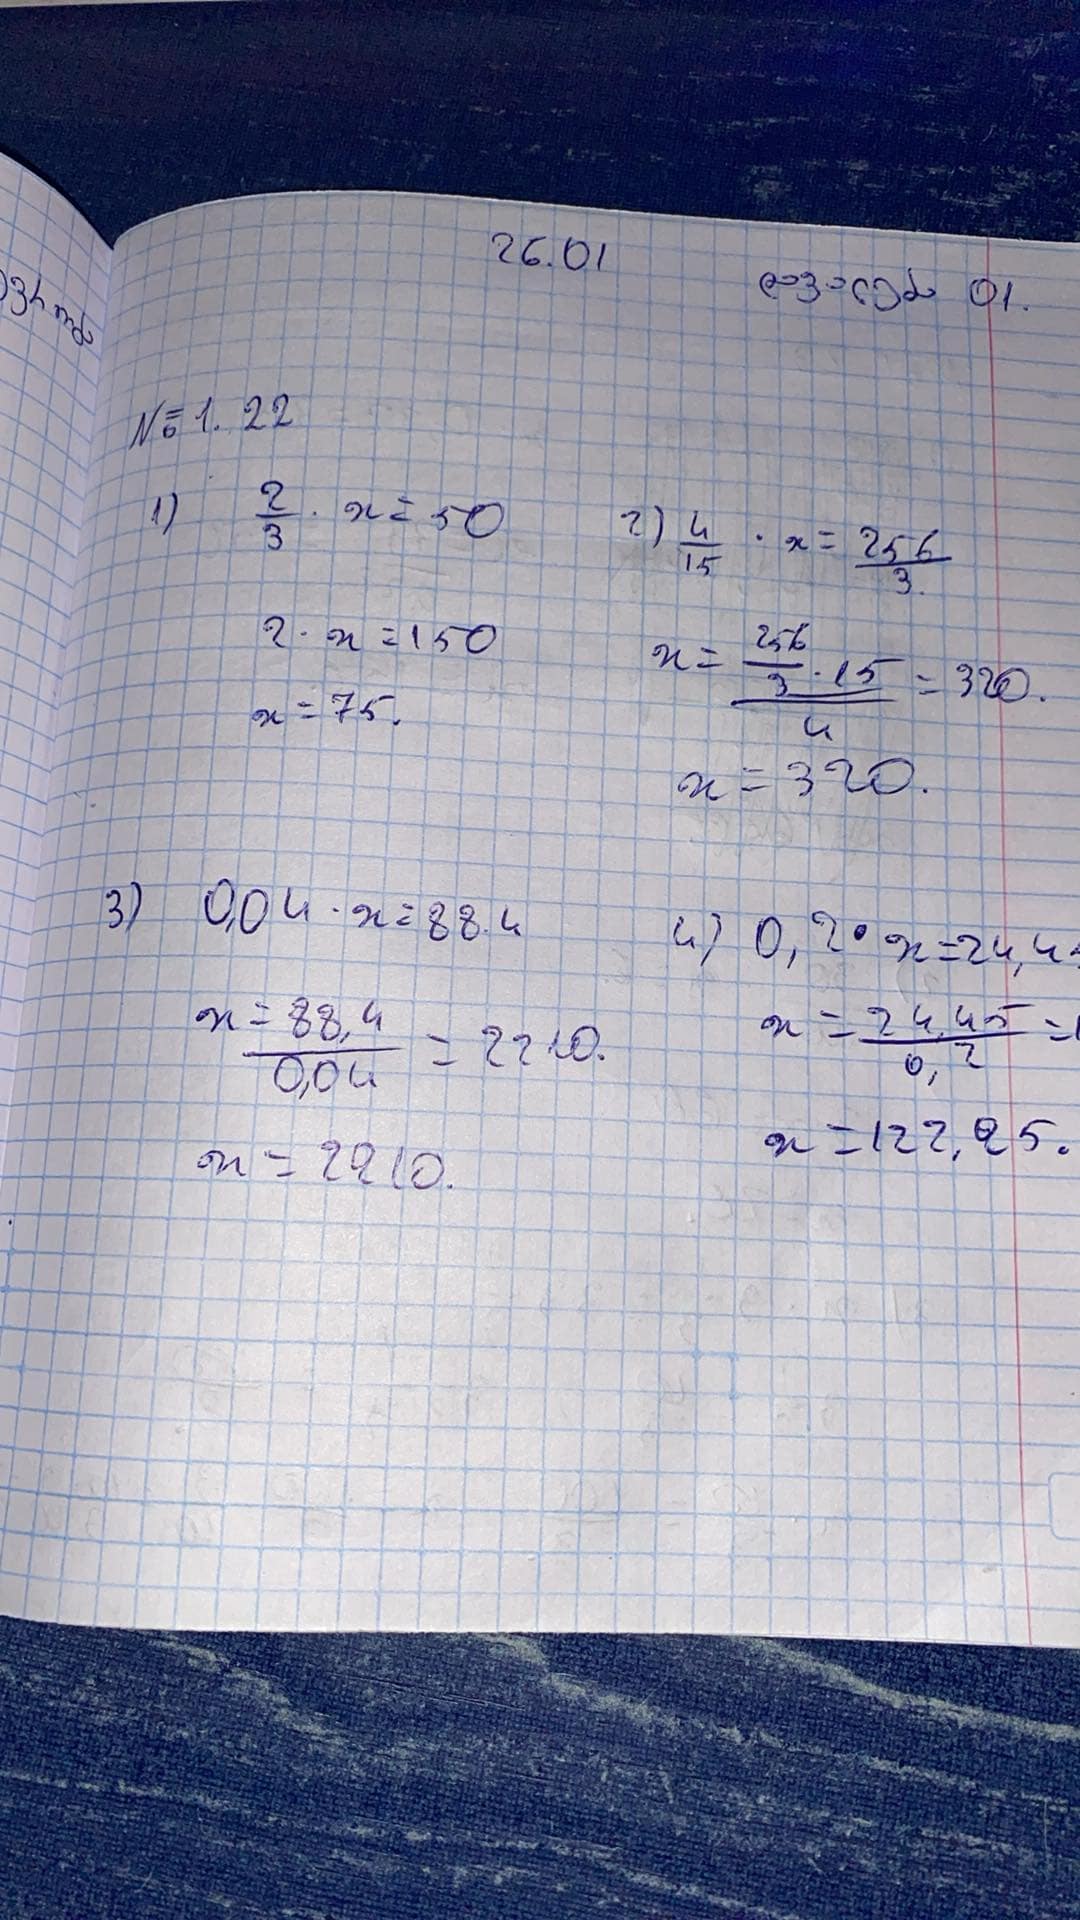 26.01
01.
№1.22
1) 2/3 · x = 50
2 · x = 150
x = 75.
2) 4/15 · x = 256/3.
x = 256/3 · 15 / 4 = 320.
x = 320.
3) 0,04 · x = 88.4
x = 88,4 / 0,04 = 2210.
x = 2210.
4) 0,2 · x = 24,4
x = 24,45 / 0,2 =
x = 122,25.